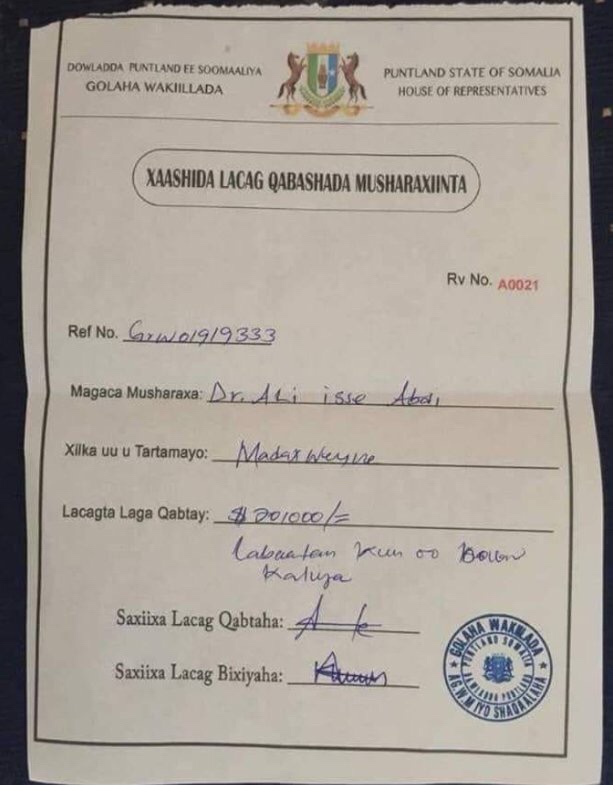 DOWLADDA PUNTLAND EE SOOMAALIYA
GOLAHA WAKIILLADA
PUNTLAND STATE OF SOMALIA
HOUSE OF REPRESENTATIVES
XAASHIDA LACAG QABASHADA MUSHARAXIINTA
Rv No. A0021
Ref No. Grw01919333
Magaca Musharaxa: Dr. Ali isse Abdi
Xilka uu u Tartamayo: Madaxweyne
Lacagta Laga Qabtay: $ 20,000/=
labaatan Kun oo Doolar
Kaliya
Saxiixa Lacag Qabtaha:
Saxiixa Lacag Bixiyaha:
GOLAHA WAKIILADA
PUNTLAND SOMALIA
DAWLADDA PUNTLAND